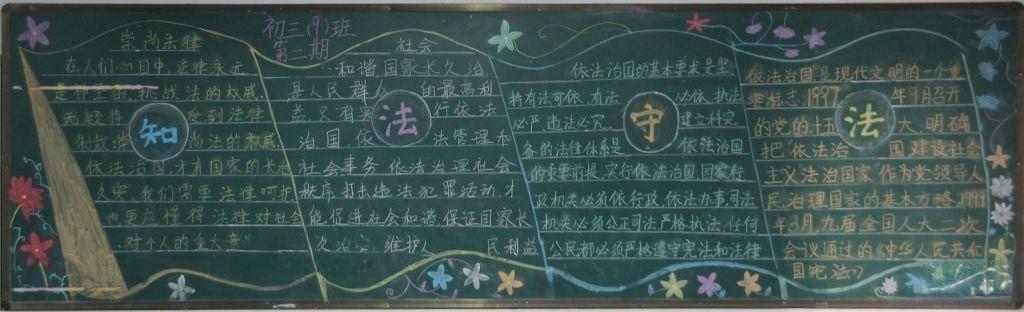 初三(9)班
第二期
知
法
守
法
崇尚法律
在人们心目中,法律永远
是神圣的,挑战法的权威,
无疑将 受到法律
制裁,崇尚法的权威,
依法治国,才有国家的长治
久安,我们需要法律呵护
也更应懂得法律对社会
、对个人的重大意义
社会
和谐国家长久治
县人民群众 的最高利
益,只有实 行依法
治国,依 法管理和
社会事务,依法治理社会
秩序,打击违法犯罪活动,才
能促进社会和谐,保证国家长
久治安,维护人 民利益
依法治国的基本要求是坚
持有法可依,有法 必依,执法
必严,违法必究, 建立科完
备的法律体系是 依法治国
的重要前提,实行依法治国国家行
政机关必须依行政,依法办事司法
机关必须公正司法,严格执法,任何
公民都必须严格遵守宪法和法律
依法治国是现代文明的一个重
要标志,1997 年9月召开
的党的十五 大,明确
把“依法治 国,建设社会
主义法治国家”作为党领导人
民治理国家的基本方略,1999
年3月,九届全国人大二次
会议通过的《中华人民共和
国宪法》